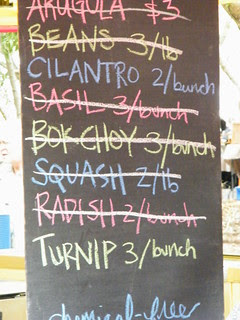 ARUGULA $3
BEANS 3/lb
CILANTRO 2/bunch
BASIL 3/bunch
BOK CHOY 3/bunch
SQUASH 2/lb
RADISH 2/bunch
TURNIP 3/bunch
chemical-free